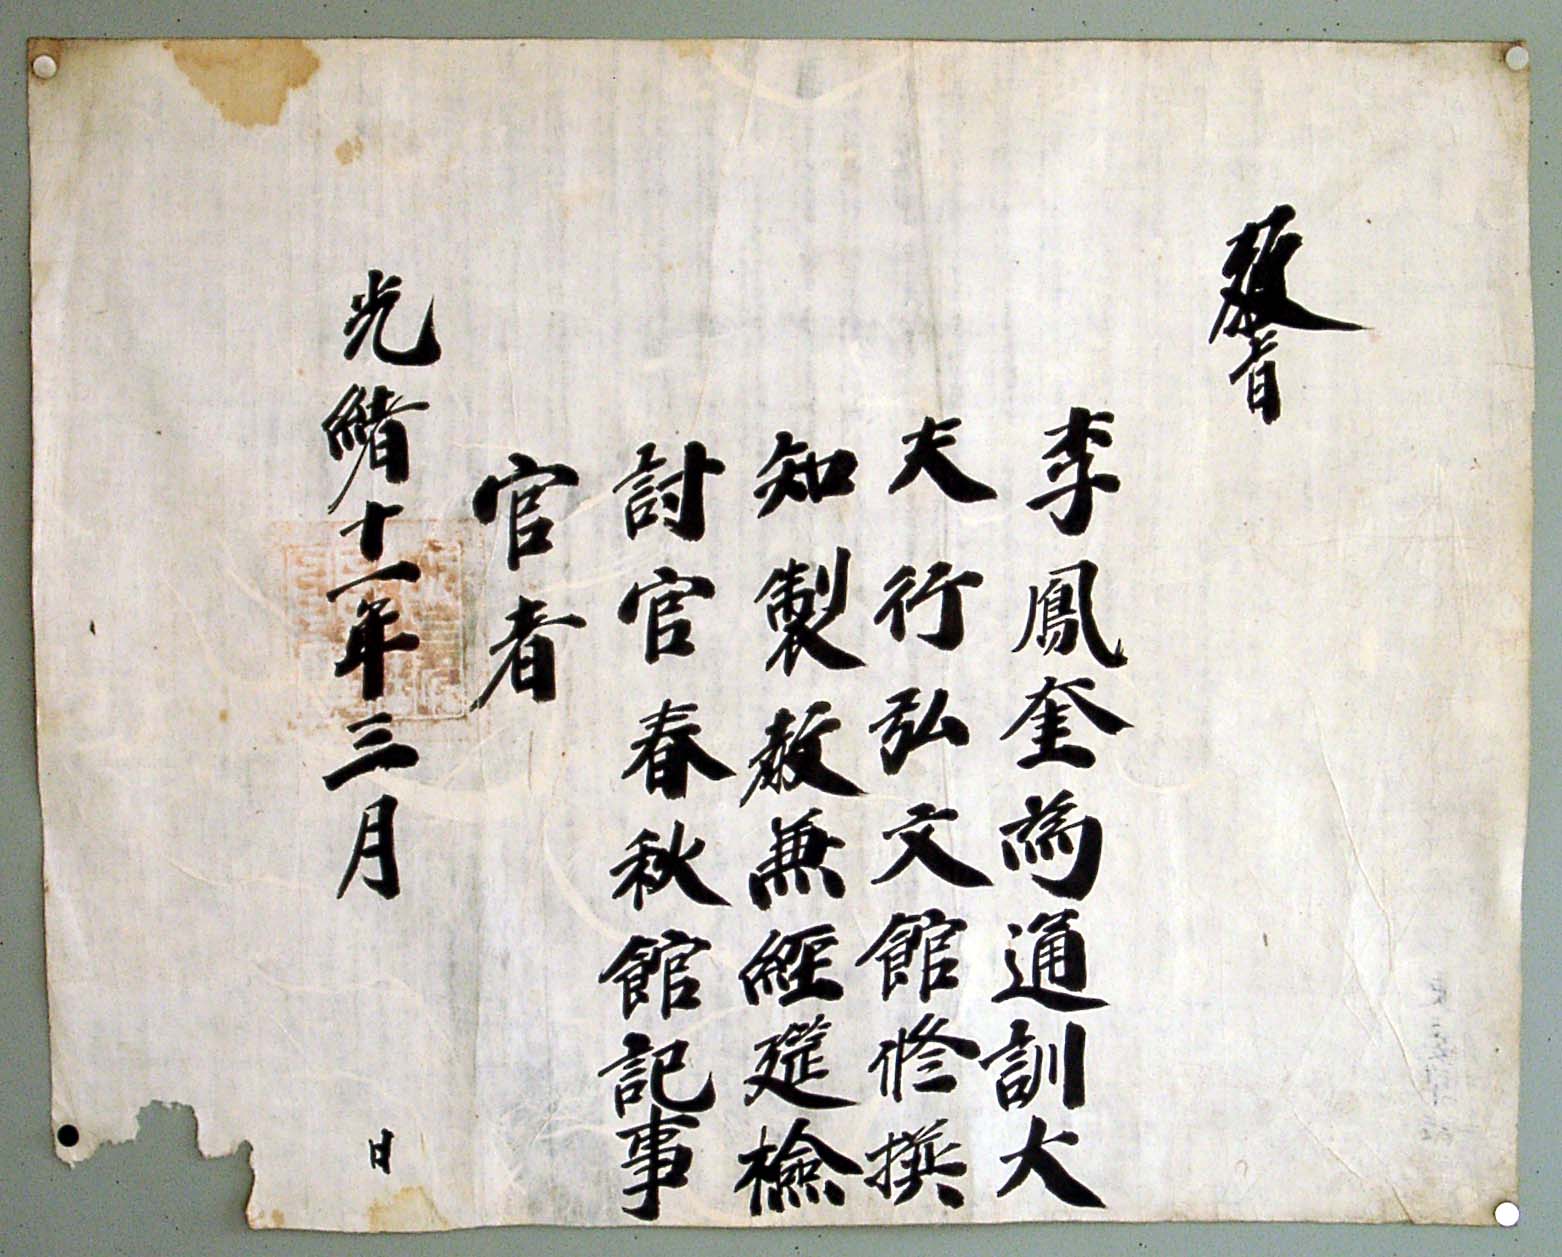 敎旨
李鳳奎爲通訓大
夫行弘文館修撰
知製敎兼經筵檢
討官春秋館記事
官者
光緖十一年三月
日